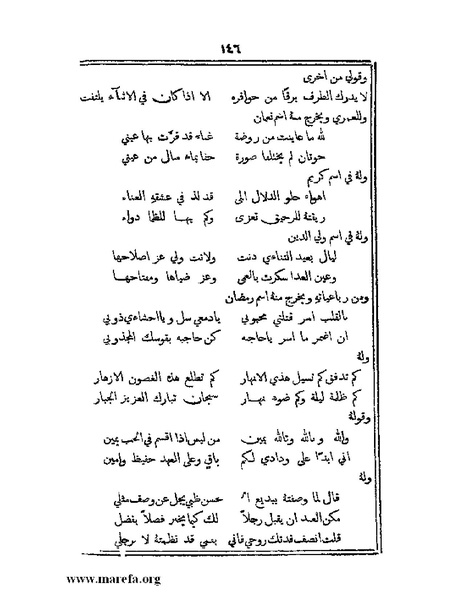 ١٤٦
وقولي من اخرى
لا يدرك الطرف برقًا من حوافره الا اذا كان في الاثنآء يلتفت
وللعمري ويخرج منه اسم نعمان
لله ما عاينت من روضة غناء قد قرّت بها عيني
حوتان لم يختلفا صورة سال من عيني
ولهُ في اسم كريم
اهواه حلو الدلال الى قد لذ في عشقه العناء
ريقته للرحيق تعزى وكم بها للظما دواء
ولهُ في اسم ولي الدين
ليال بعيد التنائي دنت ولانت ولي عز اصلاحها
وعين العدا سكرت بالعمى وعز ضياها ومفتاحها
ومن رباعياته ويخرج منهُ اسم رمضان
بالقلب اسر قتلتي محبوبي يا دمعي سل ويا احشاءي ذوبي
ان اغمر ما اسر يا حاجبه كن حاجبه بقوسك المجذوبي
ولهُ
كم تدفق كم تسيل هذي الانهار كم تطلع هذه الغصون الازهار
كم ظلمة ليلة وكم ضوء نهار سبحان تبارك العزيز الجبار
وقولهُ
والله وبالله وتالله يمين من ليس اذا اقسم في الحب يمين
اني ابدًا على ودادي لكم باقٍ وعلى العهد حفيظ وامين
ولهُ
قال لما وصفتهُ ببديع ال حسن ظبي يجل عن وصف مثلي
مكن العبد ان يقبل رجلاً لك كيما يخبر فصلاً بفضل
قلت انصف فدتك روحي فاني بفمي قد نظمته لا برجلي
www.marefa.org